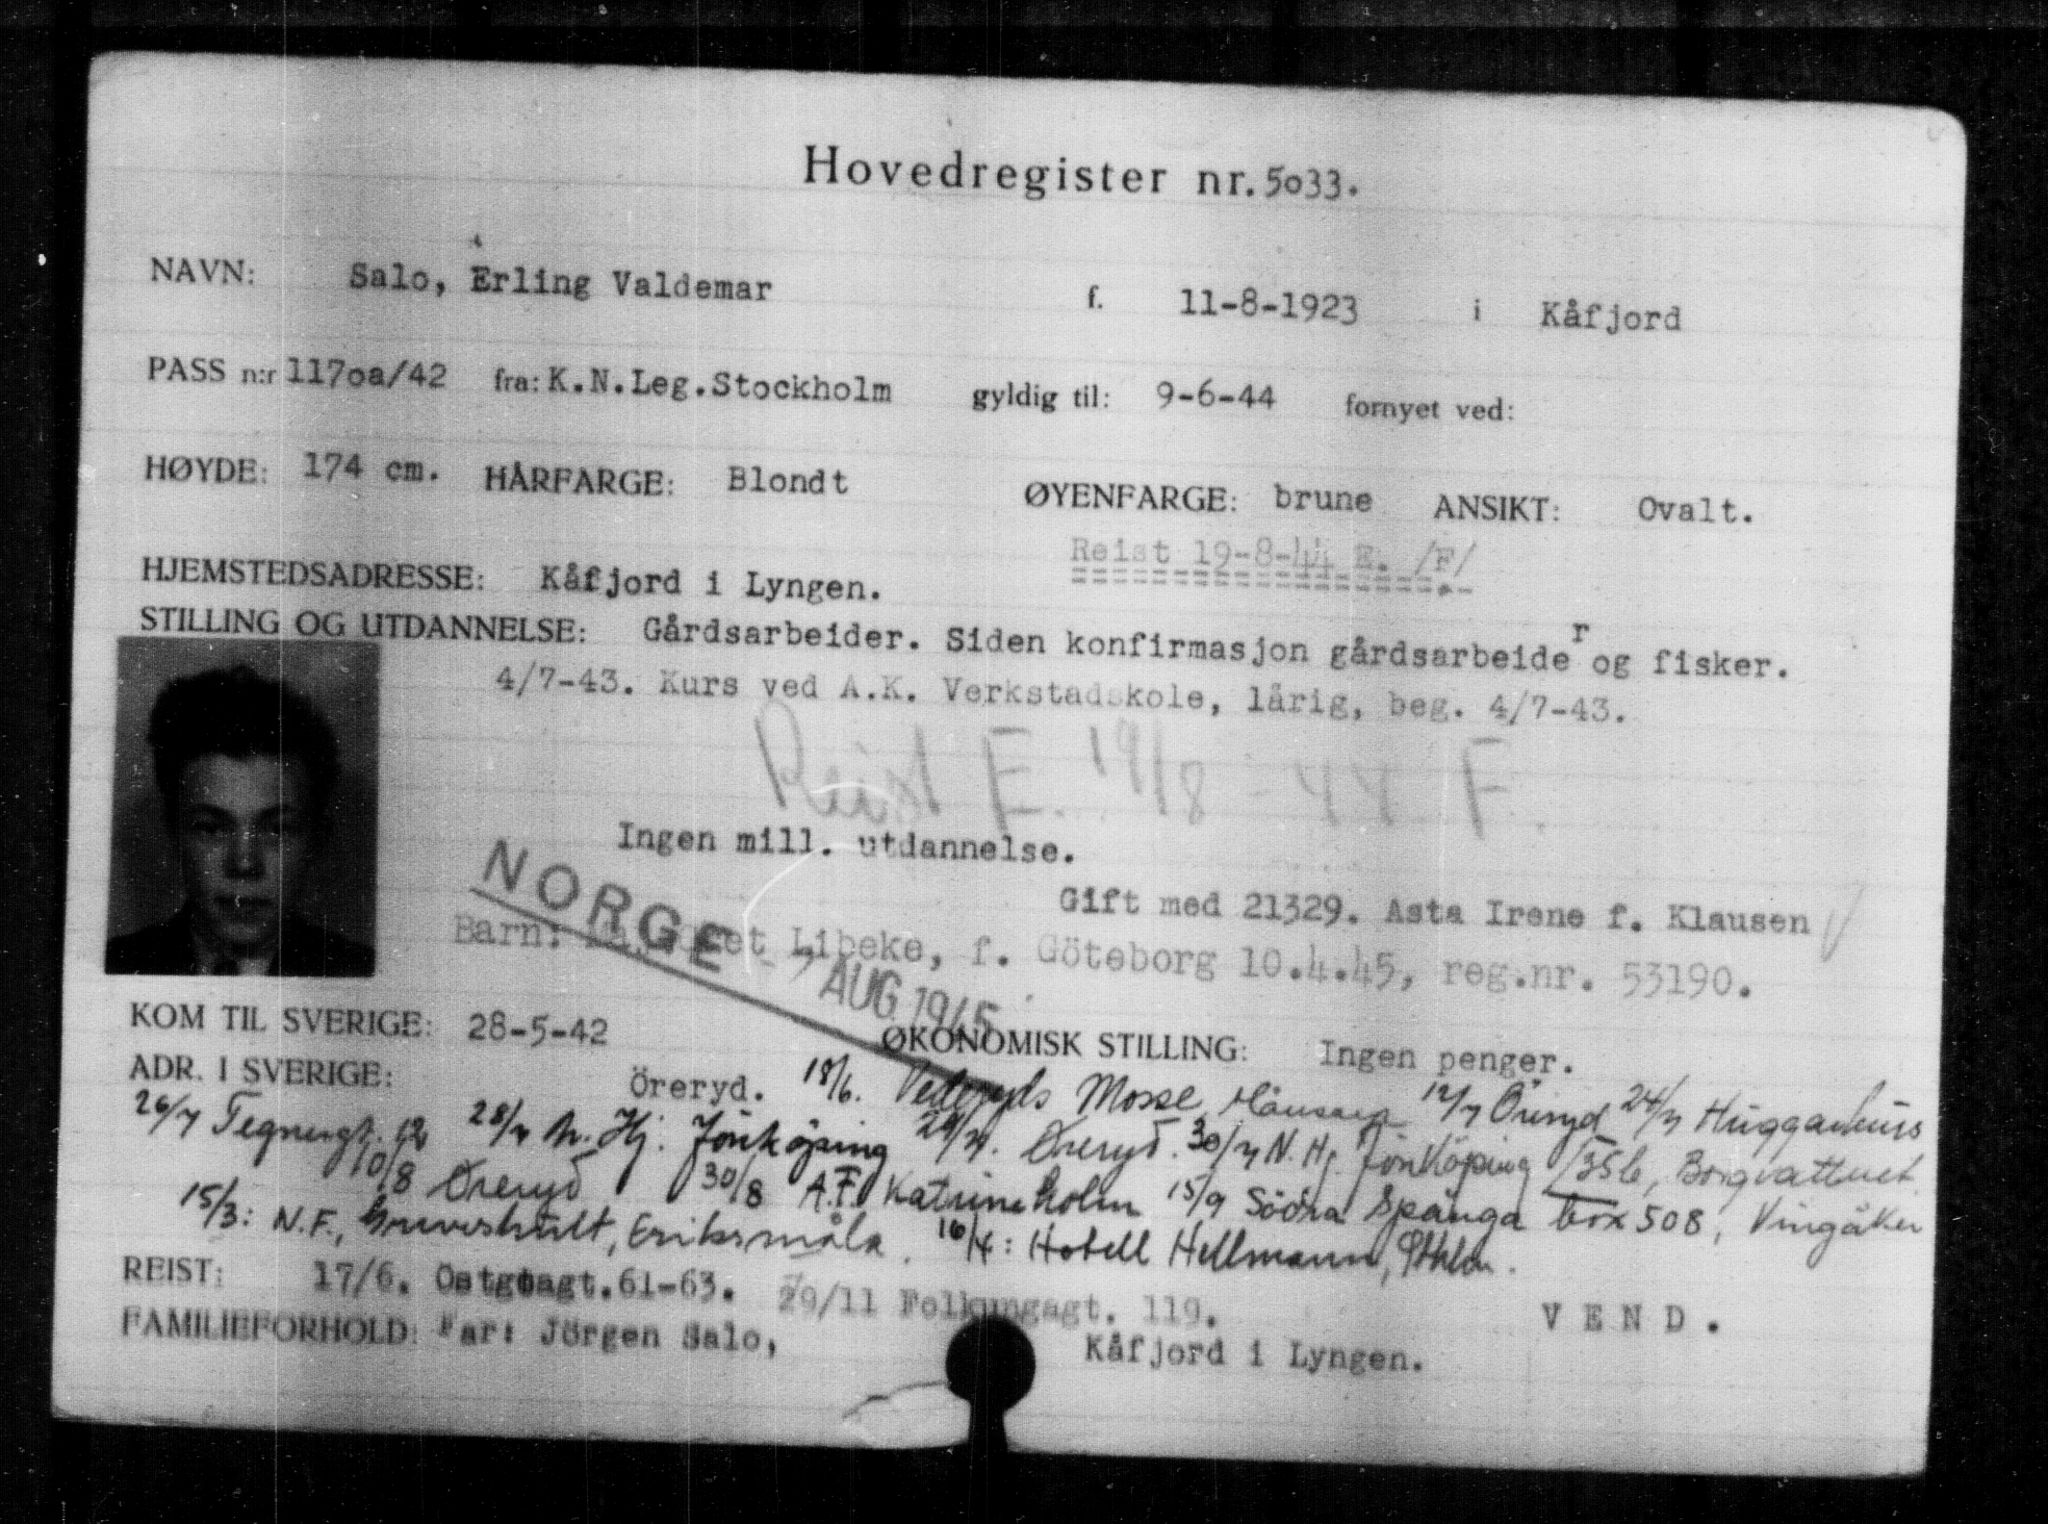 Hovedregister nr. 5033.
NAVN: Salo, Erling Valdemar f. 11-8-1923 i Kåfjord
PASS n:r 1170a/42 fra: K.N.Leg.Stockholm gyldig til: 9-6-44 fornyet ved:
HØYDE: 174 cm. HÅRFARGE: Blondt ØYENFARGE: brune ANSIKT: Ovalt.
Reist 19-8-44 E. /F/
HJEMSTEDSADRESSE: Kåfjord i Lyngen.
STILLING OG UTDANNELSE: Gårdsarbeider. Siden konfirmasjon gårdsarbeider og fisker.
4/7-43. Kurs ved A.K. Verkstadskole, lårig, beg. 4/7-43.
Reist E. 19/8 - 44 F.
Ingen mill. utdannelse.
NORGE
Gift med 21329. Asta Irene f. Klausen
Barn: Libeke, f. Göteborg 10.4.45, reg.nr. 53190.
- 7 AUG 1945
KOM TIL SVERIGE: 28-5-42 ØKONOMISK STILLING: Ingen penger.
ADR. I SVERIGE: Öreryd. 18/6. Mosse 12/7 Öreryd 24/7
26/7 Tegnergt. 12 28/7 N. Hj. Jönköping 29/7. Øreryd. 30/7 N. Hj. Jönköping 1356, Borgvattnet
10/8 Øreryd 30/8 A.F. Katrineholm 15/9 Södra Spånga box 508, Vingåker
15/3: N.F., Eriksmåla. 16/4: Hotell Hellmann, Sthlm.
REIST: 17/6. Ostgøtagt.61-63. 29/11 Folkungagt. 119.
VEND.
FAMILIEFORHOLD: Far: Jörgen Salo, Kåfjord i Lyngen.